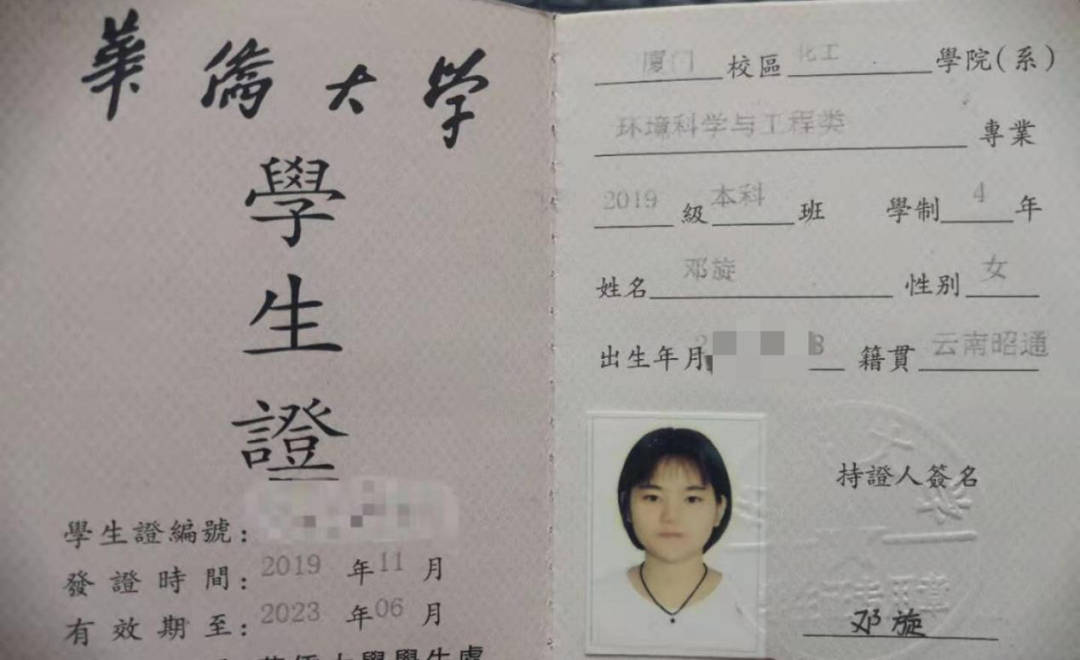 華僑大學
學生證
學生證編號：
發證時間：2019 年 11 月
有效期至：2023 年 06 月
厦门 校區 化工 學院(系)
环境科学与工程类 專業
2019 級 本科 班 學制 4 年
姓名 邓旋 性别 女
出生年月 籍貫 云南昭通
持證人簽名
邓旋